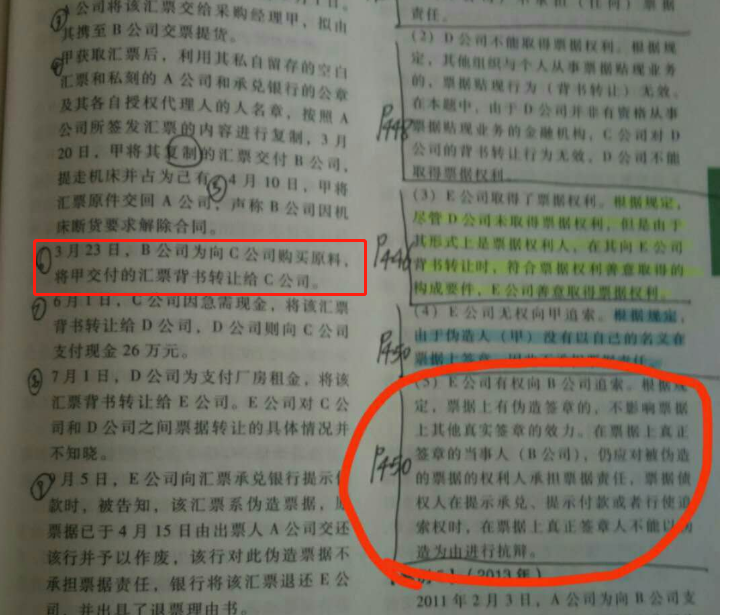 公司将该汇票交给采购经理甲，拟由
其携至B公司交票提货。
甲获取汇票后，利用其私自留存的空白
汇票和私刻的A公司和承兑银行的公章
及其各自授权代理人的人名章，按照A
公司所签发汇票的内容进行复制，3月
20日，甲将其复制的汇票交付B公司，
提走机床并占为已有。4月10日，甲将
汇票原件交回A公司，声称B公司因机
床断货要求解除合同。
3月23日，B公司为向C公司购买原料，
将甲交付的汇票背书转让给C公司。
6月1日，C公司因急需现金，将该汇票
背书转让给D公司，D公司则向C公司
支付现金26万元。
7月1日，D公司为支付厂房租金，将该
汇票背书转让给E公司。E公司对C公
司和D公司之间票据转让的具体情况并
不知晓。
月5日，E公司向汇票承兑银行提示付
款时，被告知，该汇票系伪造票据，原
票据已于4月15日由出票人A公司交还
该行并予以作废，该行对此伪造票据不
承担票据责任，银行将该汇票退还E公
司，并出具了退票理由书。
票据
责任。
(2) D公司不能取得票据权利。根据规
定，其他组织与个人从事票据贴现业务
的，票据贴现行为（背书转让）无效。
在本题中，由于D公司并非有资格从事
票据贴现业务的金融机构，C公司对D
公司的背书转让行为无效，D公司不能
取得票据权利。
P448
(3) E公司取得了票据权利。根据规定，
尽管D公司未取得票据权利，但是由于
其形式上是票据权利人，在其向E公司
背书转让时，符合票据权利善意取得的
构成要件，E公司善意取得票据权利。
P446
(4) E公司无权向甲追索。根据规定，
由于伪造人（甲）没有以自己的名义在
票据上签章，因此不承担票据责任。
P450
(5) E公司有权向B公司追索。根据规
定，票据上有伪造签章的，不影响票据
上其他真实签章的效力。在票据上真正
签章的当事人（B公司），仍应对被伪造
的票据的权利人承担票据责任，票据债
权人在提示承兑、提示付款或者行使追
索权时，在票据上真正签章人不能以伪
造为由进行抗辩。
P450
（2013年）
2011年2月3日，A公司为向B公司支